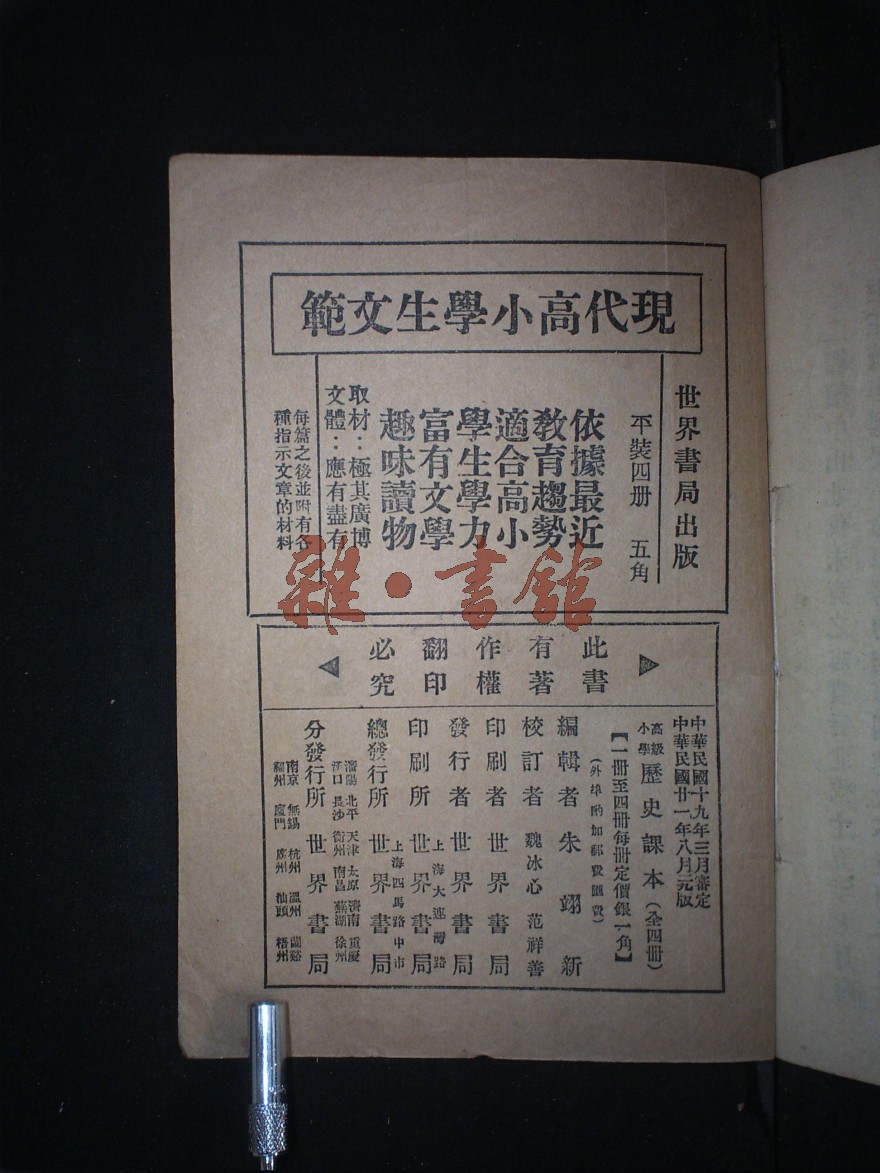 現代高小學生文範
世界書局出版
平裝四册　五角
依據最近
教育趨勢
適合高小
學生學力
富有文學
趣味讀物
取材：極其廣博
文體：應有盡有
每篇之後並附有各
種指示文章的材料
雜·書館
此書
有著
作權
翻印
必究
中華民國十九年三月審定
中華民國廿一年八月元版
高級
小學
歷史課本（全四冊）
【一冊至四冊每冊定價銀一角】
（外埠酌加郵費匯費）
編輯者 朱翊新
校訂者 魏冰心 范祥善
印刷者 世界書局
發行者 世界書局
上海大連灣路
印刷所 世界書局
上海四馬路中市
總發行所 世界書局
瀋陽 北平 天津 太原 濟南 重慶
漢口 長沙 衡州 南昌 蕪湖 徐州
分發行所 世界書局
南京 無錫 杭州 溫州 蘭谿
福州 廈門 廣州 汕頭 梧州